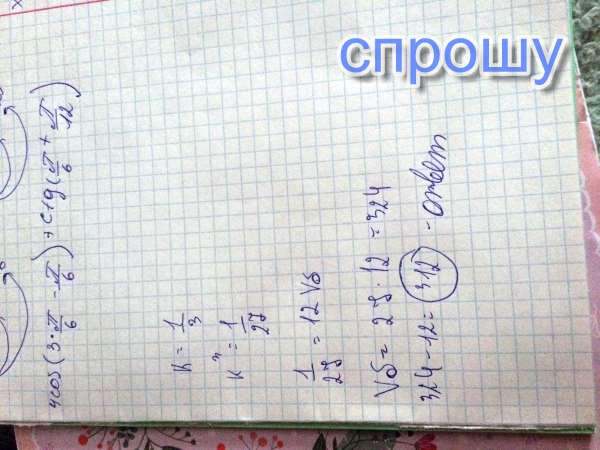 спрошу
4cos(3·π/6 - π/6) + ctg(π/6 + π/12)
K = 1/3
K³ = 1/27
1/27 = 12Vб
Vб = 27 · 12 = 324
324 - 12 = 312 - ответ